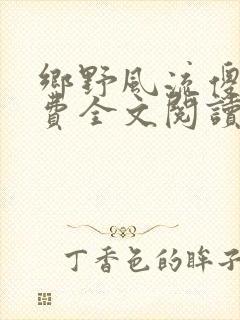 鄉野風流傻
費全文閱讀
丁香色的眸子